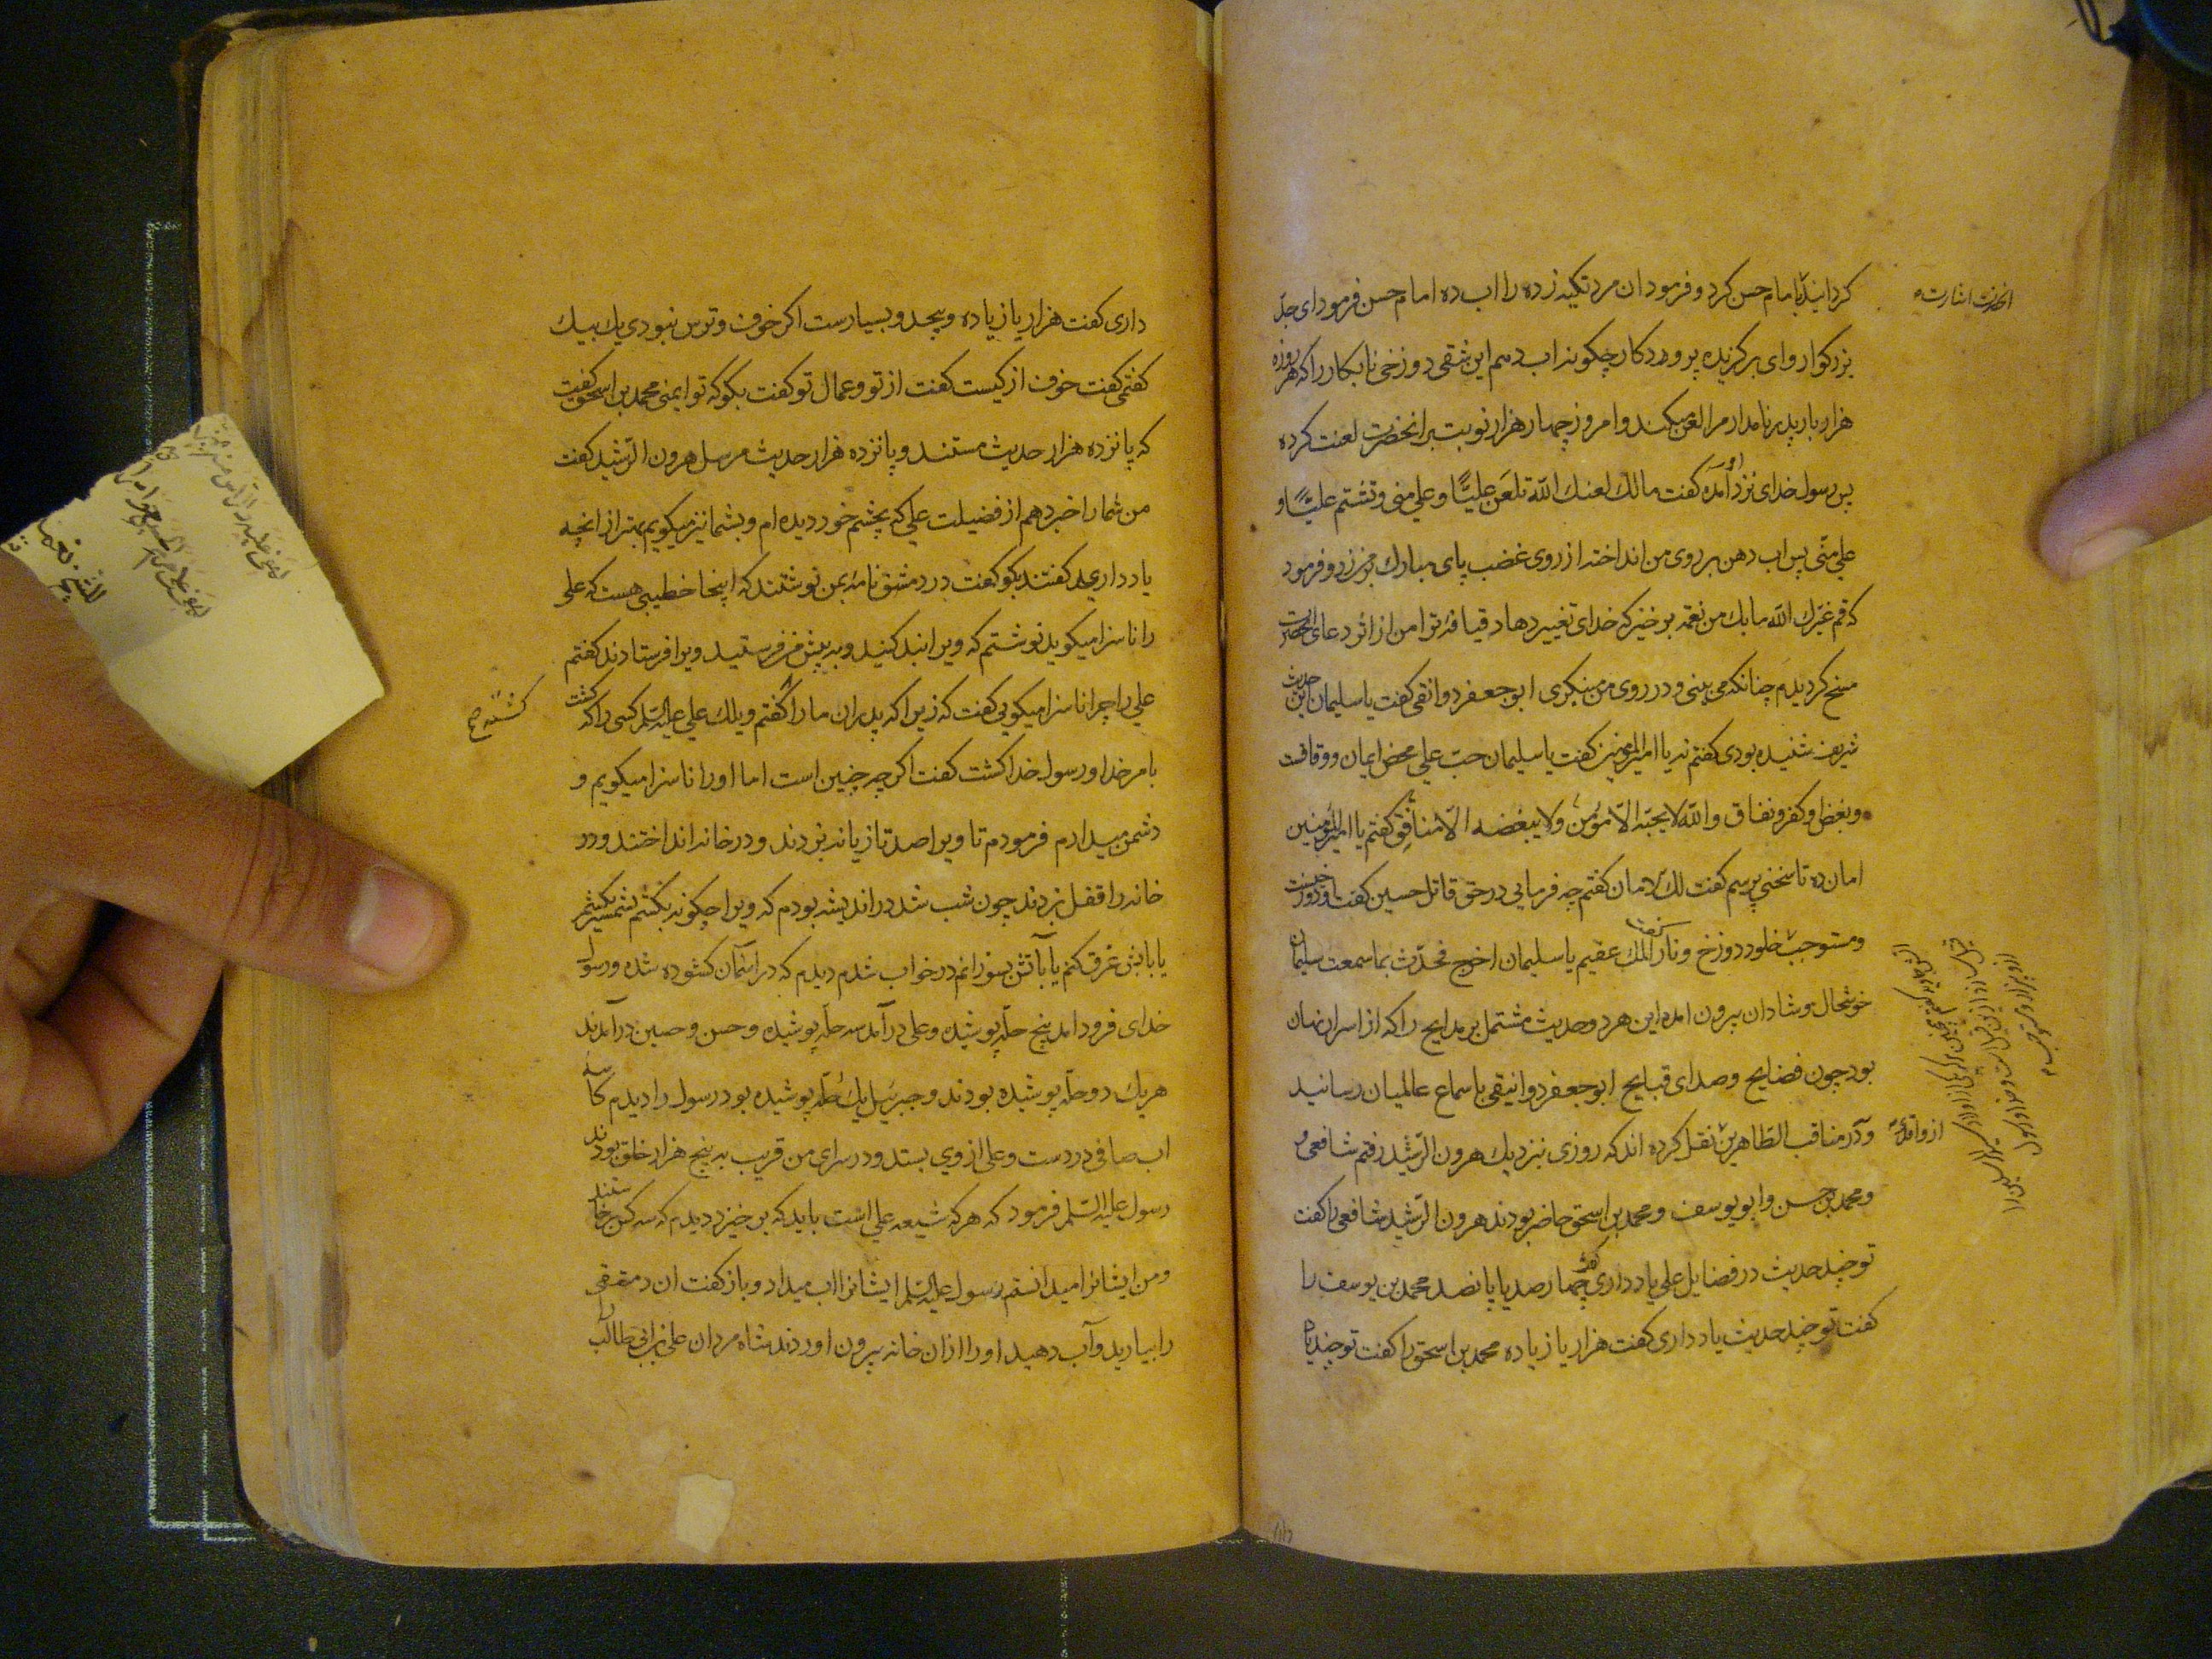 کردانید با امام حسن کرد و فرمود ان مرد تکیه زده را اب ده امام حسن فرمود ای جدّ
بزرکوار و ای برکزیده پروردکار چکونه اب دهم این شقی دوزخی نابکار را که هر روزه
هزار بار پدر نامدار مرا لعن میکند و امروز چهار هزار نوبت بر انحضرت لعنت کرده
پس رسول خدای نزد او آمده کفت مالك لعنك اللّه تلعن علیًّا و علی منی و تشتم علیًّا و
علی منّی پس اب دهن بر روی من انداخته از روی غضب پای مبارك بر من زد و فرمود
که قم غیّرك اللّه مابك من نعمة برخیز که خدای تغییر دهاد قیافه ترا من از اثر دعای انحضرت
مسخ کردیدم چنانکه می بینی و در روی من مینکری ابو جعفر دوانقی کفت یا سلیمان این حدیث
شریف شنیده بودی کفتم نه یا امیرالمؤمنین کفت یا سلیمان حبّ علی محض ایمان و وفاقست
و بغض او کفر و نفاق و اللّه لا یحبّه الّا مؤمن ولا یبغضه الّا منافق کفتم یا امیرالمؤمنین
امان ده تا سخنی پرسم کفت لك الامان کفتم چه فرمایی در حق قاتل حسین کفت او دوزخیست
و مستوجب خلود دوزخ و نار کفت الملك عقیم یا سلیمان اخرج فحدّث بما سمعت سلیمان
خوشحال و شادان بیرون امده این هر دو حدیث مشتمل بر مدایح را که از اسرار نهان
بود چون فضایح و صدای قبایح ابو جعفر دوانیقی باسماع عالمیان رسانید
و در مناقب الطّاهرین نقل کرده اند که از واقدی روزی بنزدیك هرون الرّشید رفتم شافعی و
و محمد بن حسن و ابو یوسف و محمد بن اسحق حاضر بودند هرون الرّشید شافعی را کفت
تو چند حدیث در فضایل علی یاد داری کفت چهارصد یا پانصد محمد بن یوسف را
کفت تو چند حدیث یاد داری کفت هزار یا زیاده محمد بن اسحق را کفت تو چند یاد
داری کفت هزار یا زیاده و بیحد و بسیارست اکر خوف و ترس نبودی یك بیك
کفتمی کفت خوف از کیست کفت از تو و عمال تو کفت بکو که تو ایمنی محمد بن اسحق کفت
که پانزده هزار حدیث مسند و پانزده هزار حدیث مرسل هرون الرّشید کفت
من شما را خبر دهم از فضیلت علی که بچشم خود دیده ام و بشما نیز میکویم بهتر از انچه
یاد دارید کفتند بکو کفت در دمشق نامه بمن نوشتند که اینجا خطیبی هست که علی
را ناسزا میکوید نوشتم که ویرا بند کنید و به پیش من فرستید ویرا فرستادند کفتم
علی را چرا ناسزا میکویی کفت که زیرا که پدران ما را کشت کفتم ویلك علی علیه السلم کسی را که کشت
کشته صح
بامر خدا و رسول خدا کشت کفت اکر چه چنین است اما او را ناسزا میکویم و
دشمن میدارم فرمودم تا ویرا صد تازیانه بزدند و در خانه انداختند و در
خانه را قفل بزدند چون شب شد در اندیشه بودم که ویرا چکونه بکشم بشمشیر بکشم
یا بابش غرق کنم یا بآتش بسوزانم در خواب شدم دیدم که در اسمان کشوده شده و رسول
خدای فرود امد پنج حلّه پوشیده و علی درآمد سه حلّه پوشیده و حسن و حسین درآمدند
هر یك دو حلّه پوشیده بودند و جبرئیل یك حلّه پوشیده بود رسول را دیدم کاسه
اب صافی در دست و علی از وی بستد و در سرای من قریب به پنج هزار خلق بودند
رسول علیه السلم فرمود که هر که شیعه علی است باید که بر خیزد دیدم که سه کس خاستند
و من ایشانرا میدانستم رسول علیه السلم ایشانرا اب میداد و باز کفت ان دمشقی
را بیارید و آب دهید او را از ان خانه بیرون اوردند شاه مردان علی بن ابی طالب را